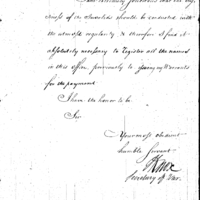 ness of the Invalids should be conducted with
the utmost regularity & therefore I find it
absolutely necessary to Register all the names
in this office previously to issuing Warrants
for the payment
I have the honor to be
Sir
Your most obedient
humble Servant
HKnox
Secretary of War.